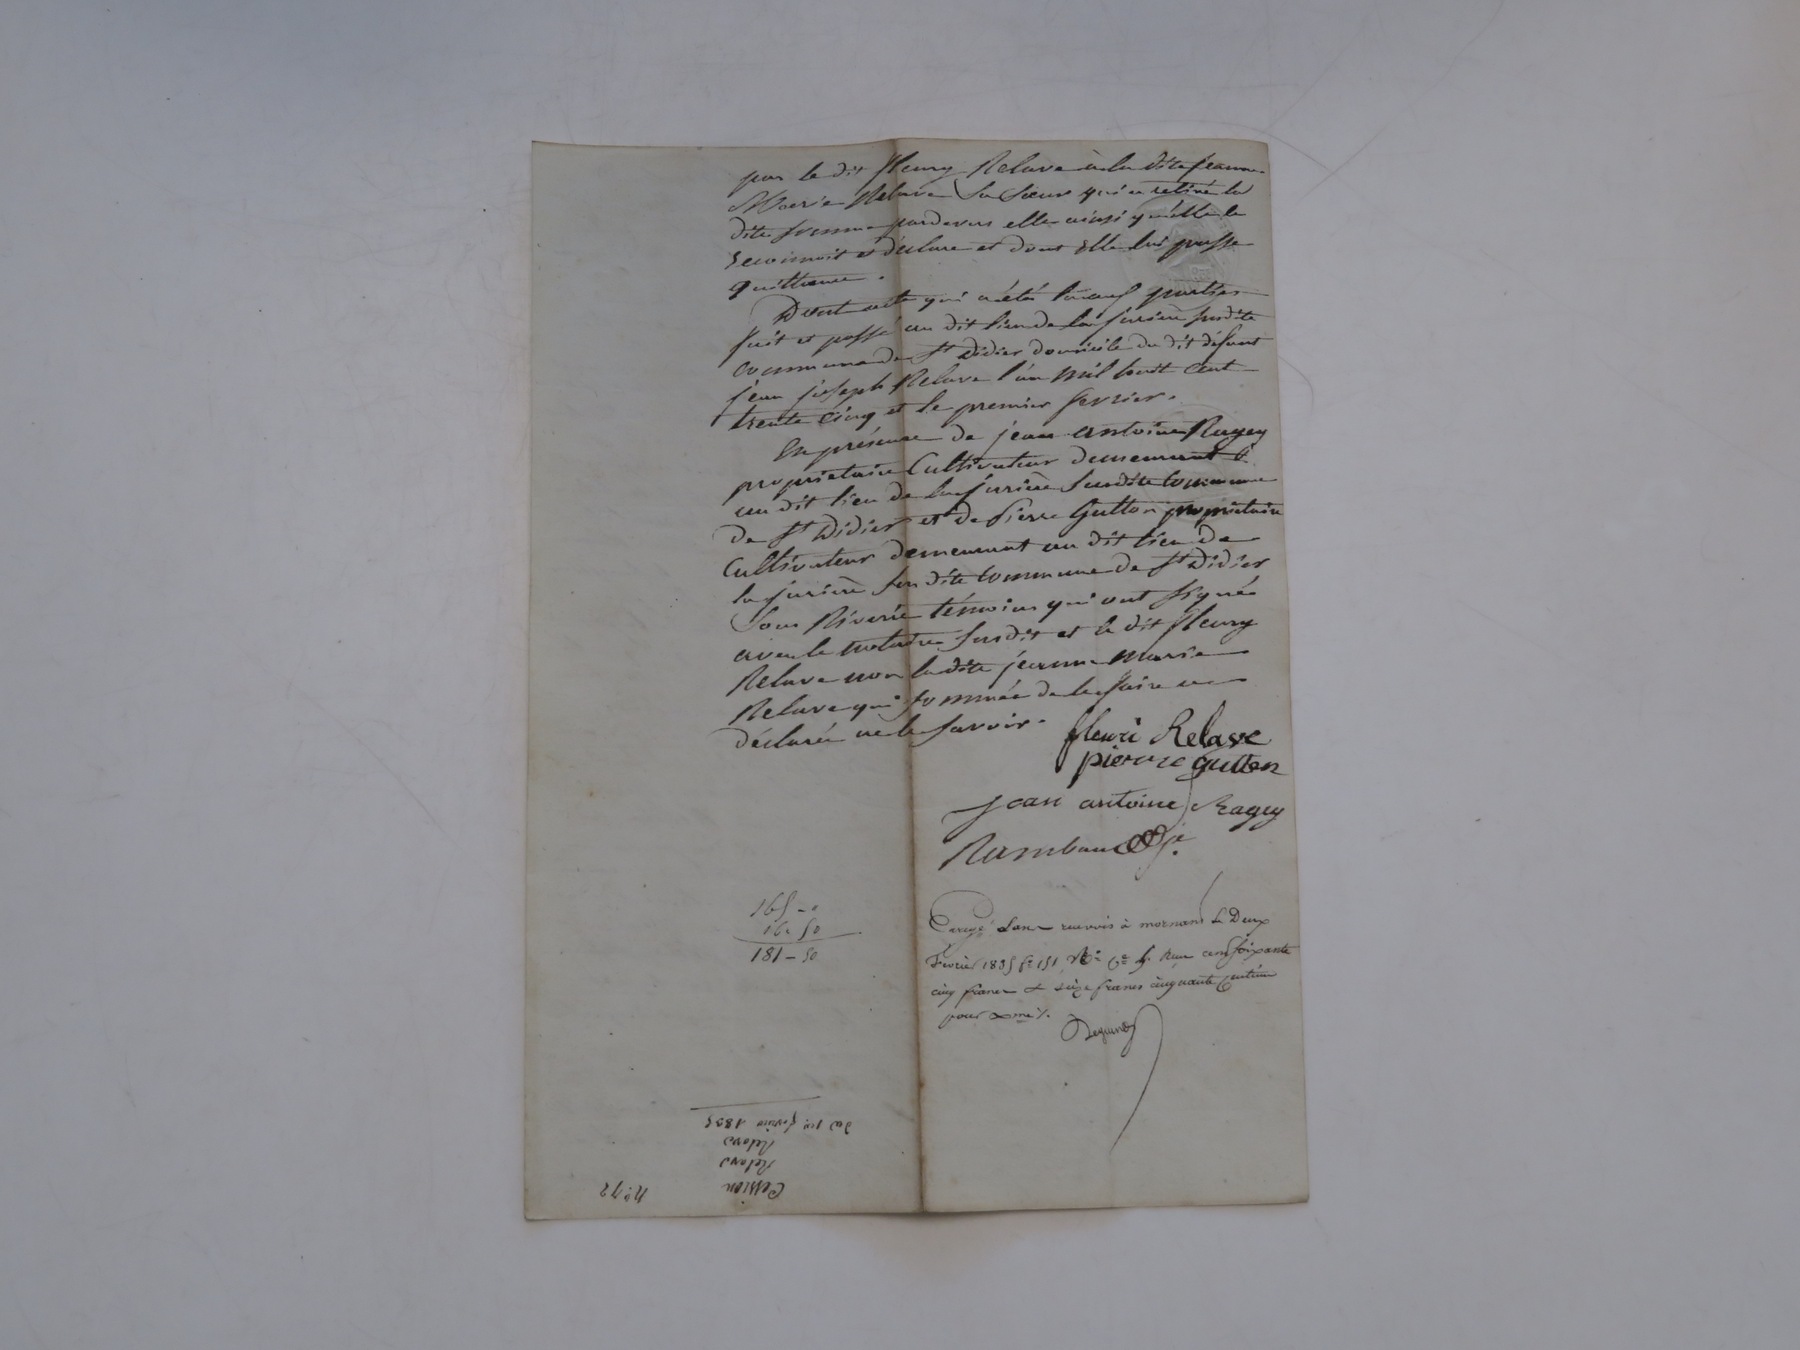 par le dit fleury Relave à la dite jeanne
Marie Relave sa sœur qui a retiré la
dite somme pardevers elle ainsi qu'elle le
reconnoit et déclare et dont elle lui passe
quittance.
Dont acte qui a été lu aux parties
fait et passé au dit lieu de la jurière susdite
commune de St Didier domicile du dit défunt
jean joseph Relave l'an mil huit cent
trente cinq et le premier fevrier.
En présence de jean antoine Ragey
propriétaire Cultivateur demeurant
au dit lieu de la jurière susdite commune
de St Didier et de Pierre Gutton propriétaire
Cultivateur demeurant au dit lieu de
la jurière susdite commune de St Didier
sous Riverie témoins qui ont signé
avec le notaire susdit et le dit fleury
Relave non la dite jeanne Marie
Relave qui sommée de le faire a
déclaré ne le savoir.
fleuri Relave
pierre gutton
jean antoine Ragey
Rambaud
165 - 0
16 50
181 - 50
Enregé à mornant le Deux
Février 1835 fo 151 cent soixante
cinq francs et seize francs cinquante centimes
pour xme %.
No 72
Cession
Relave
Relave
du 1er février 1835